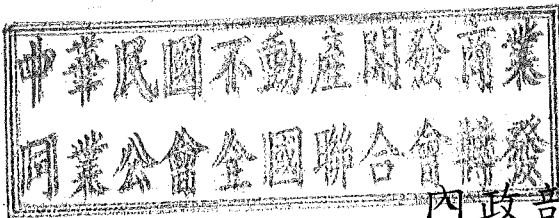 中華民國不動產開發商業
同業公會全國聯合會轉發
內政部